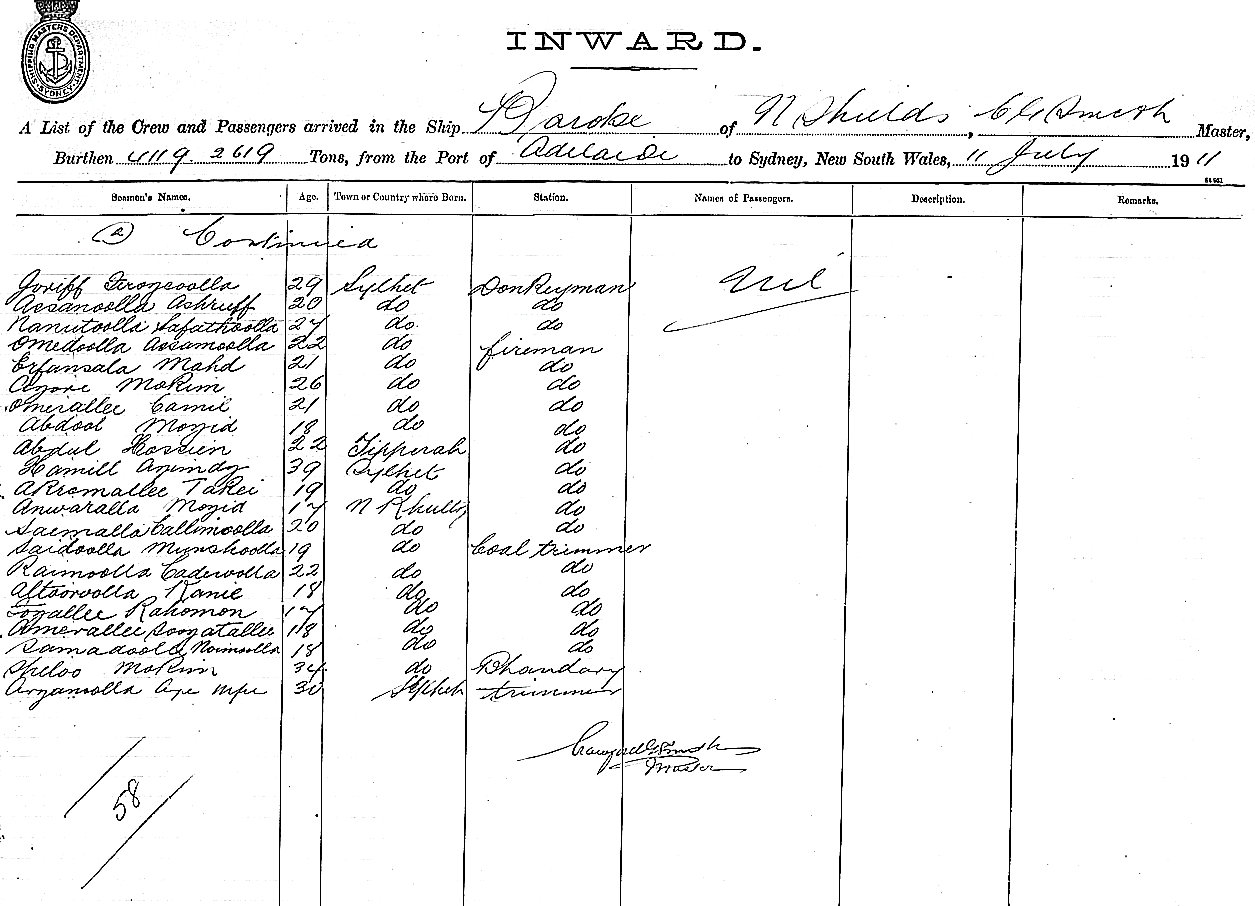 SHIPPING MASTERS DEPARTMENT SYDNEY
INWARD.
A List of the Crew and Passengers arrived in the Ship Baroke of N Shields, C G Smith Master,
Burthen 4119. 2619 Tons, from the Port of Adelaide to Sydney, New South Wales, 11 July 1911
Seamen's Names. Age. Town or Country where Born. Station. Names of Passengers. Description. Remarks.
(2) Continued
29 Sylhet Donkeyman Nil
Assanoolla Ashruff 20 do do
Nanutoolla Safathoolla 27 do. do
Omedoolla Assamoolla 22 do fireman
Erfansala Mahd 21 do do
Mokim 26 do do
Omerallee Camil 21 do do
Abdool Mozid 18 do do
Abdul Hossien 22 Tipperah do
Hamill Azimdy 39 Sylhet do
Akremallee Takei 19 do do
Anwaralla Mozid 17 N Khully do
Saemalla Callimoolla 20 do do
Saidoolla Munshoolla 19 do Coal trimmer
Raimoolla Caderoolla 22 do do
Altoorvolla Kanie 18 do do
Fozallee Rahomon 17 do do
Amerallee Soojatallee 18 do do
Samadoolla Noimoolla 18 do do
Mokim 34 do Bhandary
30 Sylhet trimmer
Crawford G Smith
Master
58